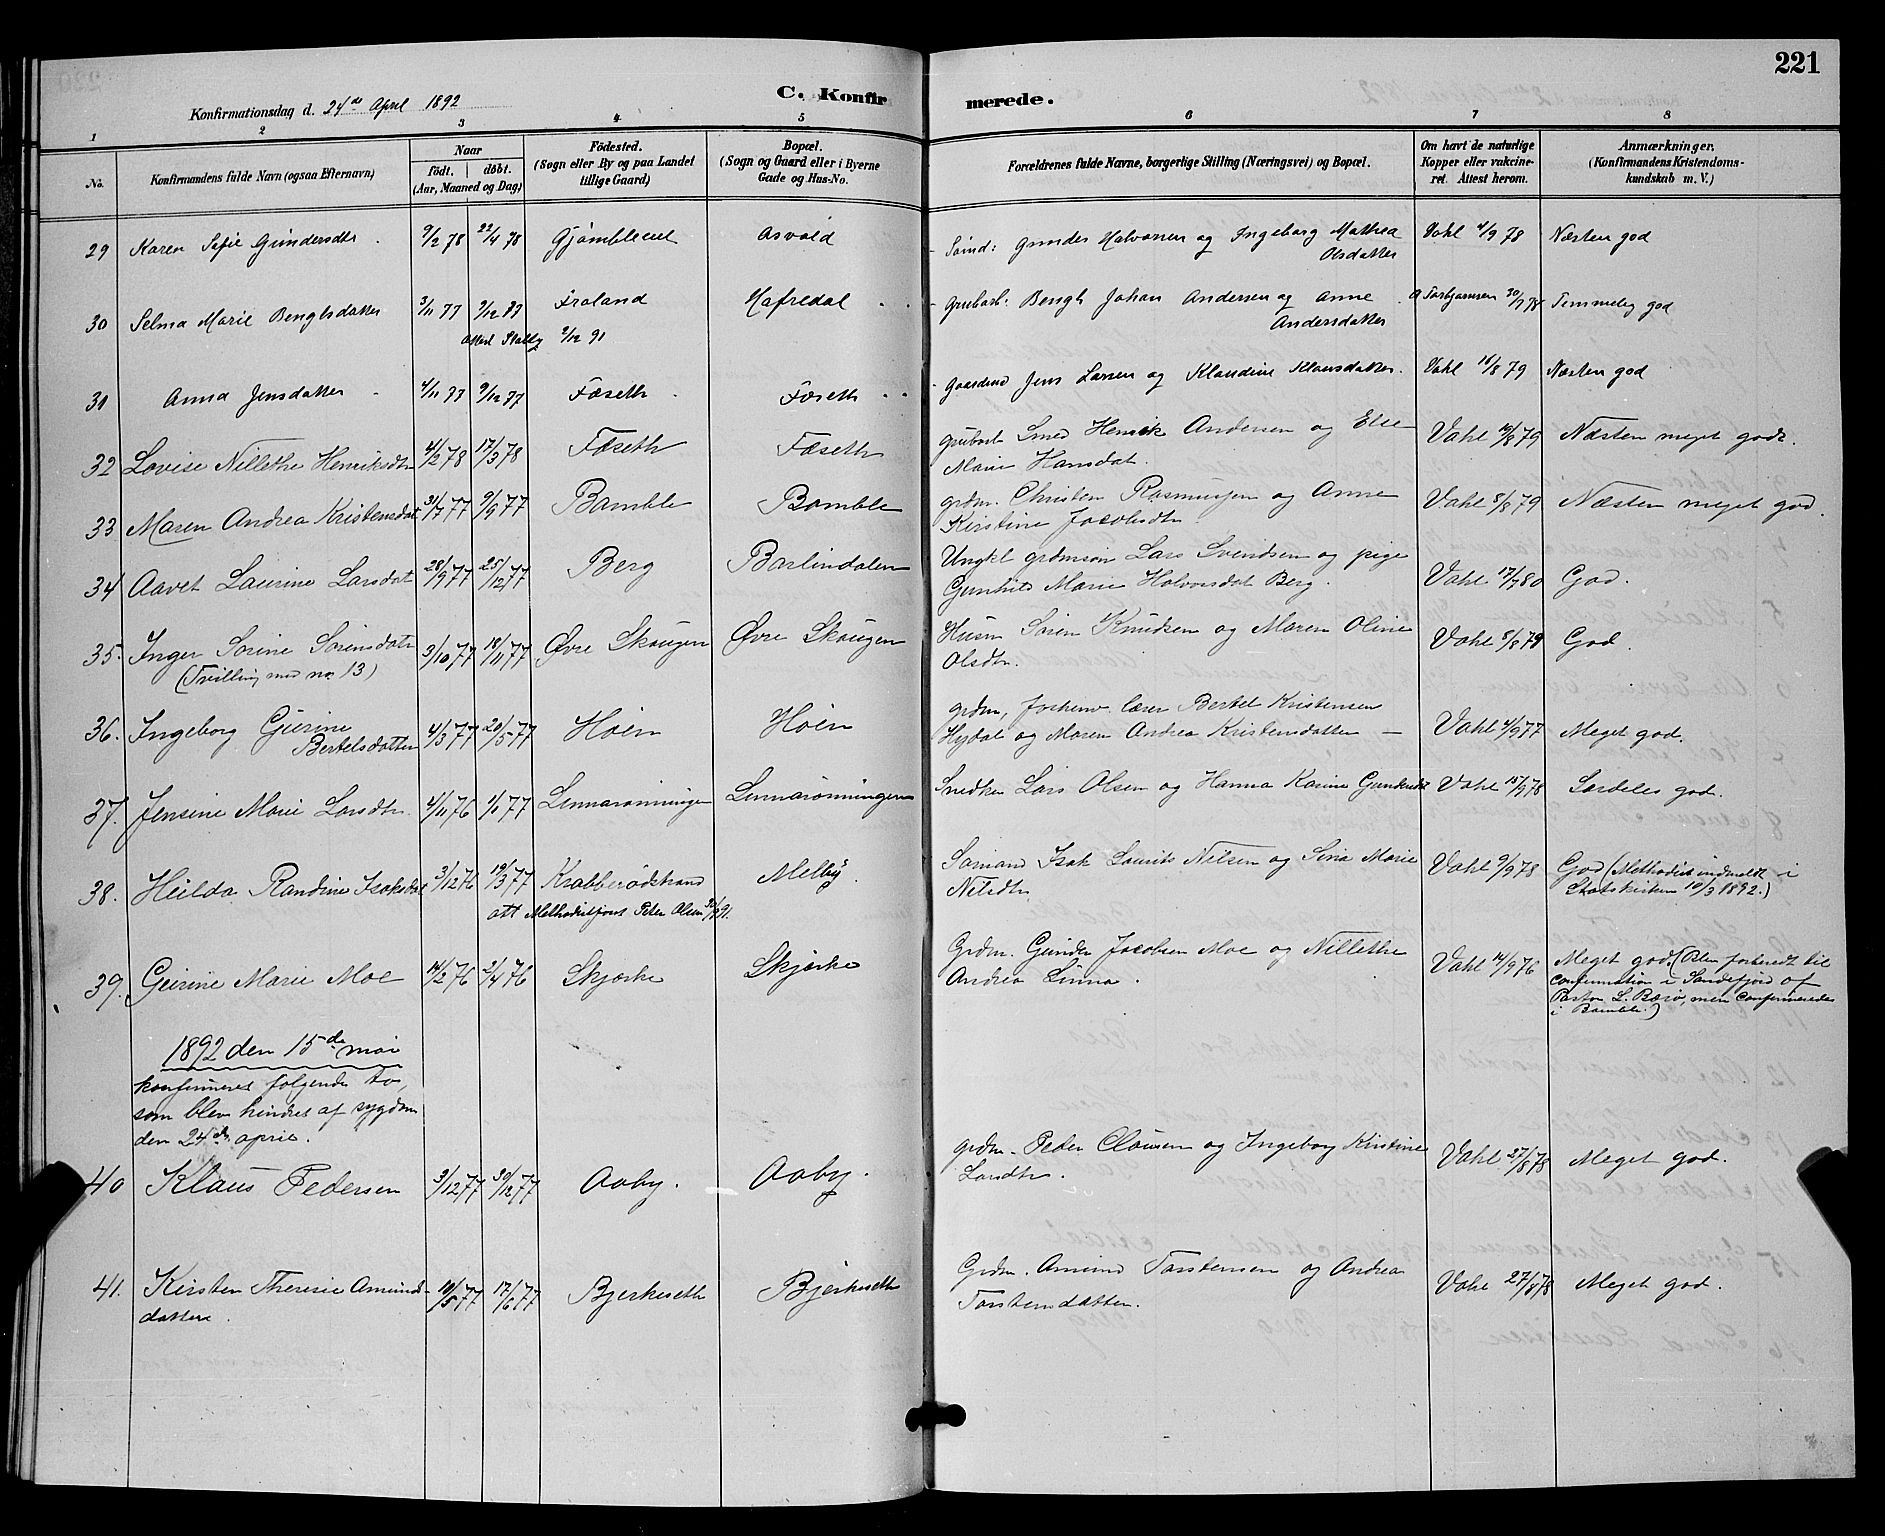 221
C. Konfirmerede.
Konfirmationsdag d. 24de April 1892
1 2 3 4 5 6 7 8
No.
Konfirmandens fulde Navn (ogsaa Efternavn)
Naar
født. døbt.
(Aar, Maaned og Dag)
Fødested.
(Sogn eller By og paa Landet
tillige Gaard)
Bopæl.
(Sogn og Gaard eller i Byerne
Gade og Hus-No.
Forældrenes fulde Navne, borgerlige Stilling (Næringsvei) og Bopæl.
Om havt de naturlige
Kopper eller vakcine-
ret. Attest herom.
Anmærkninger.
(Konfirmandens Kristendoms-
kundskab m. V.)
29 Karen Sofie Gundersdtr 9/2 78 22/4 78 Asvold Sømd: Gunder Halvorsen og Ingeborg Mathea Vahl 4/9 78 Næsten god
Olsdatter
30 Selma Marie Bengtsdatter 3/11 77 9/12 77 Froland Hafredal Grubarb. Bengt Johan Andersen og Anne Torbjørnsen 30/7 78 Temmelig god
Andersdatter
2/12 91
31 Anna Jensdatter 4/11 77 9/12 77 Fæseth Fæseth Gaardmd Jens Larsen og Klaudine Klausdatter. Vahl 16/8 79 Næsten god
32 Lovise Nillethe Henriksdtr 4/2 78 17/3 78 Fæseth Fæseth Grubarb Smed Henrik Andersen og Else Vahl 16/8 79 Næsten meget godt.
Marie Hansdat.
33 Maren Andrea Kristensdat 31/7 77 9/9 77 Bamble Bamble Grdm. Christen Rasmussen og Anne Vahl 5/8 79 Næsten meget god.
Kirstine Jacobsdtr
34 Aavet Laurine Larsdat 28/9 77 25/12 77 Berg Barlindalen Ungkl grdmsøn Lars Svendsen og pige Vahl 17/7 80 God.
Gunhild Marie Halvorsdat Berg.
35. Inger Sorine Sørensdatr 3/10 77 18/11 77 Øvre Skaugen Øvre Skaugen Husm Søren Knudsen og Maren Oline Vahl 5/8 79 God.
(Tvilling med no. 13) Olsdtr.
36. Ingeborg Gurine 4/3 77 20/5 77 Høen Høen Grdm, forhenv. lærer Bertel Kristensen Vahl 4/9 77 Meget god.
Bertelsdatter Hydal og Maren Andrea Kristensdatter —
37. Jensine Marie Larsdtr. 4/11 76 1/1 77 Linnarønningen Linnarønningen Snedker Lars Olsen og Hanna Karine Gundersdt Vahl 15/9 78 Særdeles god.
38. Hilda Randine Isaksdat 3/12 76 19/3 77 Krabberødstrand Melby. Sømand Isak Laurits Nilsen og Sina Marie Vahl 9/9 78 God (Methodist indmeldt i
att Methodistforst Peter Olsen Nilsdtr. Statskirken 10/3 1892.)
39. Gurine Marie Moe 14/2 76 2/4 76 Skjærke Skjærke Grdm. Gunder Jacobsen Moe og Nillethe Vahl 14/9 76 Meget god. (Blev forberedt til
Andrea Linna. confirmation i Sandefjord af
Pastor L. Barø, men confirmerede
i Bamble.)
1892 den 15de mai
konfirmeret følgende to,
som blev hindret af sygdom
den 24de april.
40 Klaus Pedersen 3/12 77 30/12 77 Aaby. Aaby. Grdm. Peder Clausen og Ingeborg Kirstine Vahl 27/8 78 Meget god.
Larsdtr.
41. Kirsten Theresie Amund- 10/5 77 17/6 77 Bjerkeseth Bjerkeseth Grdm. Amund Torstensen og Andrea Vahl 27/8 78 Meget god.
datter. Torstensdatter.